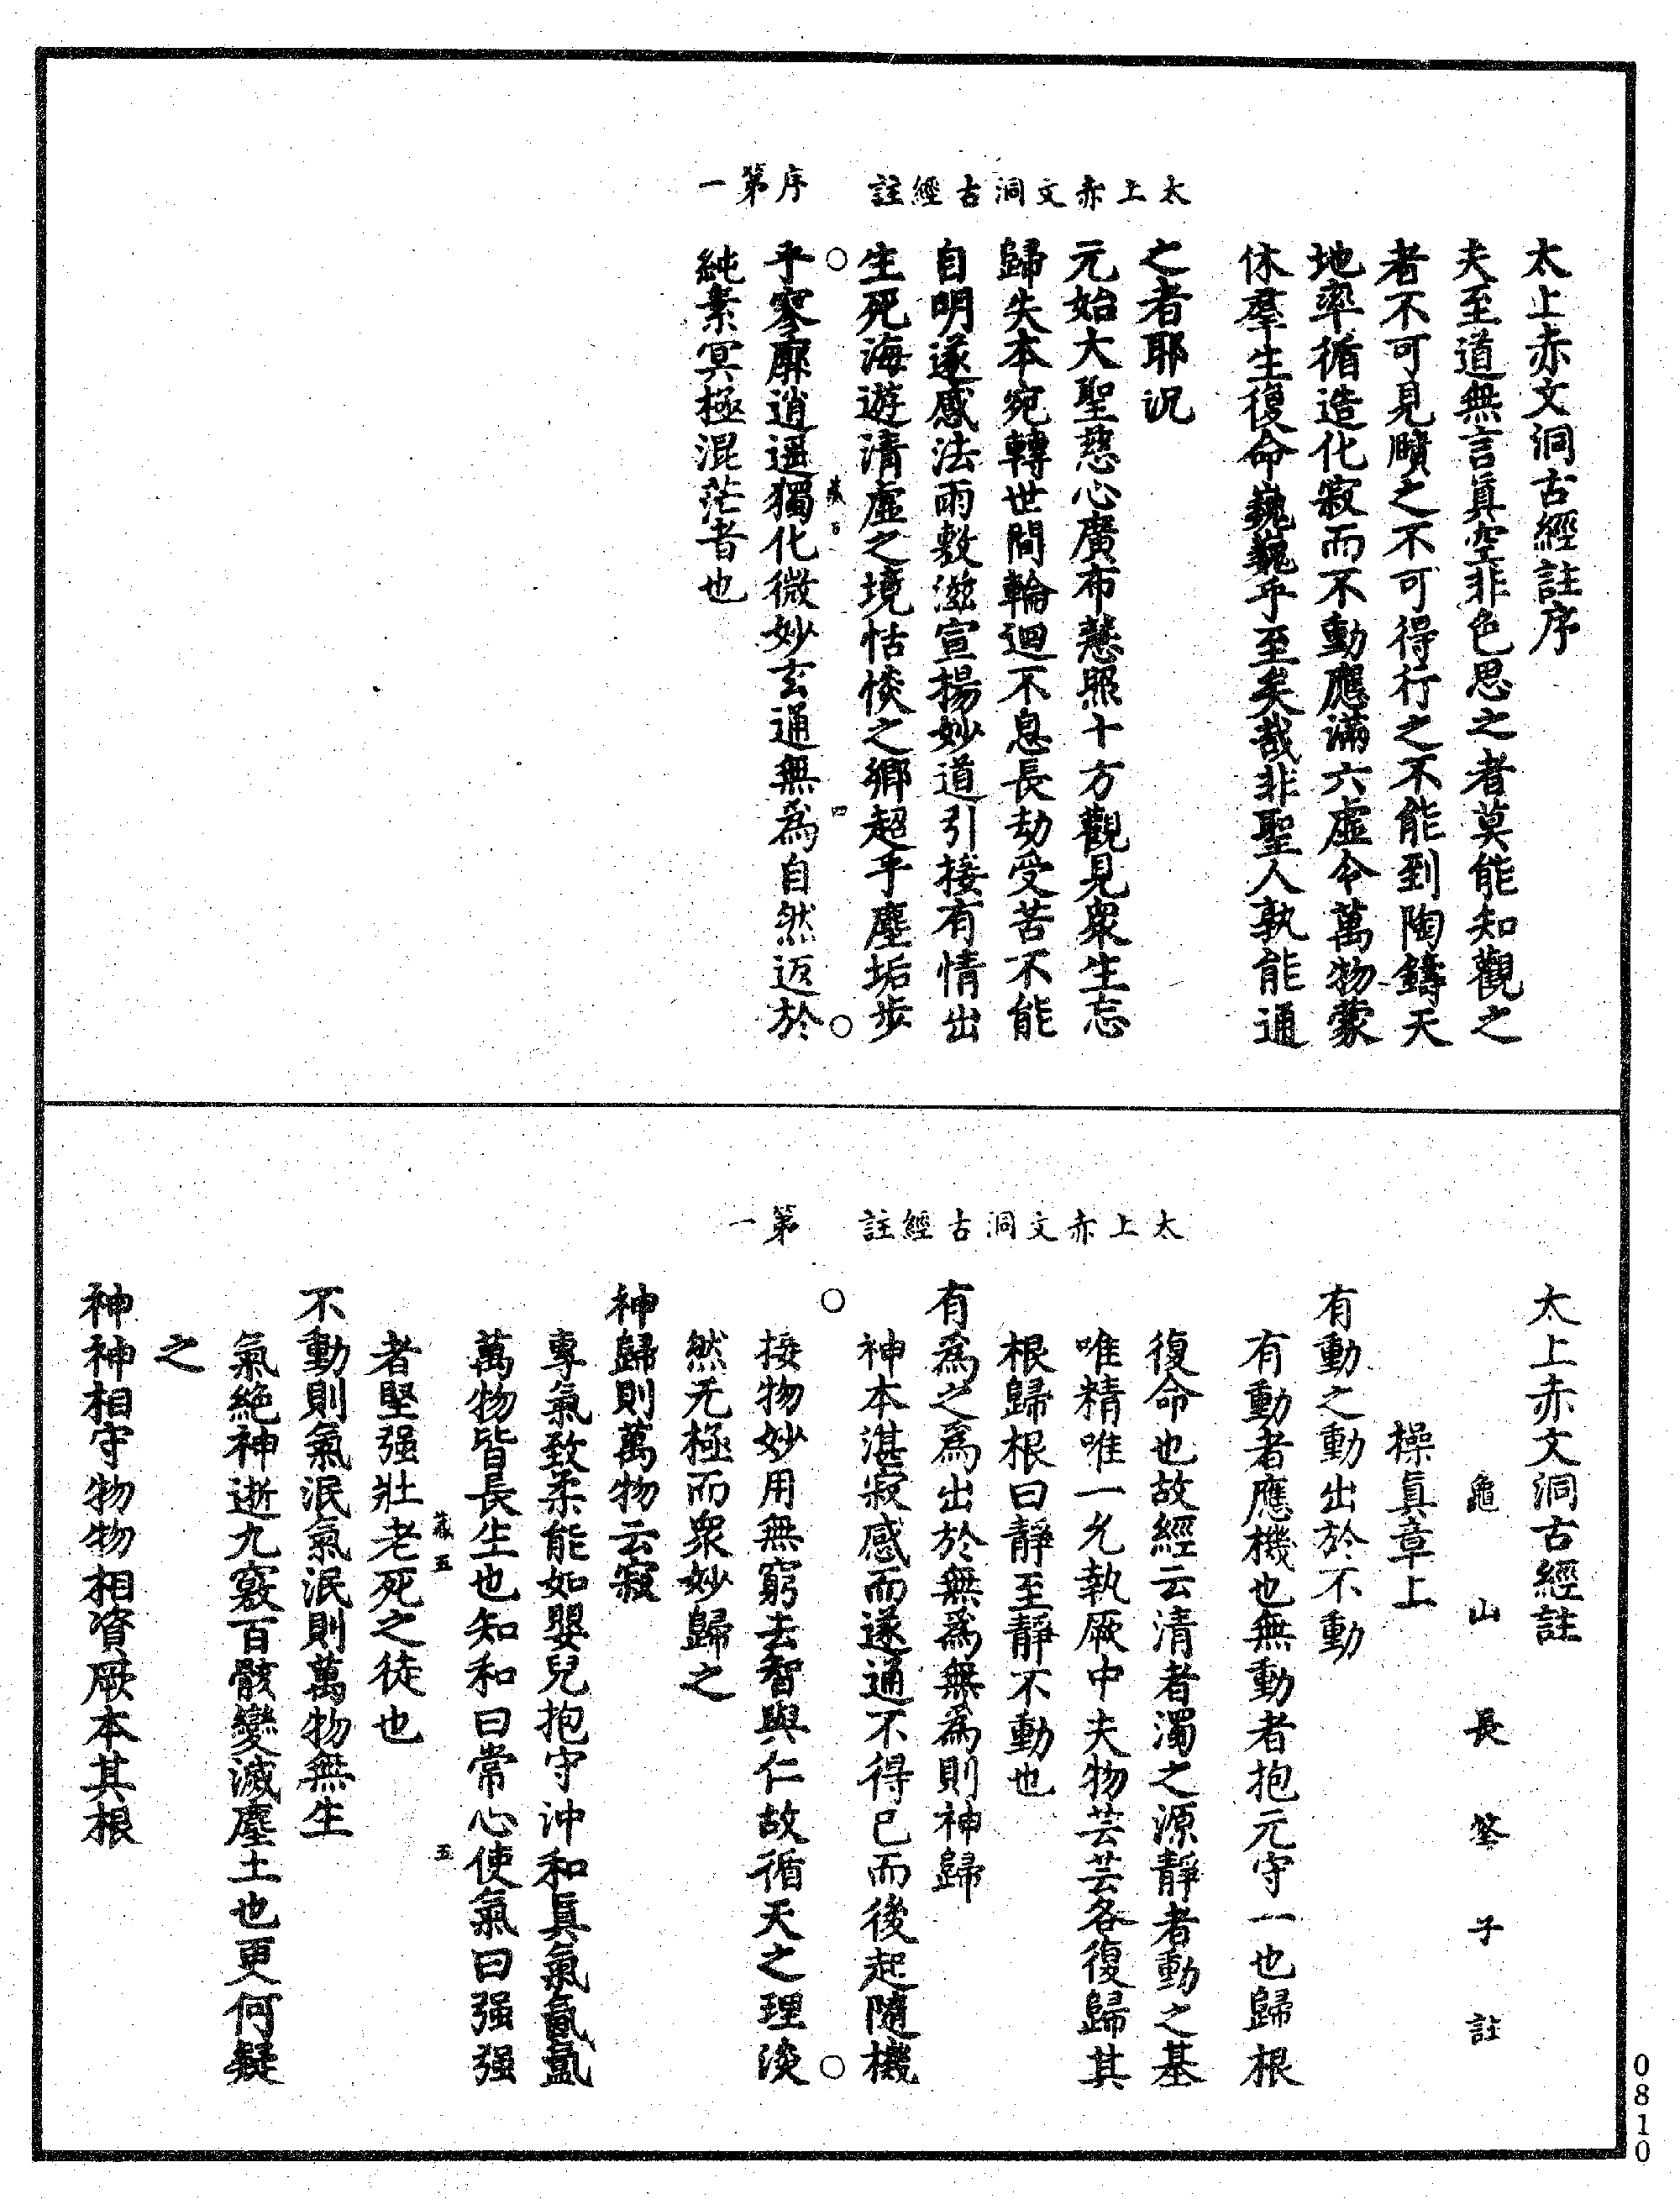 太上赤文洞古經註　序第一
太上赤文洞古經註序
夫至道無言眞空非色思之者莫能知觀之
者不可見賾之不可得行之不能到陶鑄天
地率循造化寂而不動應滿六虛令萬物蒙
休羣生復命巍巍乎至矣哉非聖人孰能通
之者耶況
元始大聖慈心廣布慧照十方觀見衆生忘
歸失本宛轉世間輪迴不息長劫受苦不能
自明遂感法雨敷滋宣揚妙道引接有情出
生死海遊清虛之境恬惔之鄉超乎塵垢步
四
乎寥廓逍遥獨化微妙玄通無爲自然返於
純素冥極混茫者也
太上赤文洞古經註　第一
太上赤文洞古經註
龜山長筌子註
操眞章上
有動之動出於不動
有動者應機也無動者抱元守一也歸根
復命也故經云清者濁之源靜者動之基
唯精唯一允執厥中夫物芸芸各復歸其
根歸根曰靜至靜不動也
有爲之爲出於無爲無爲則神歸
神本湛寂感而遂通不得已而後起隨機
接物妙用無窮去智與仁故循天之理淡
然无極而衆妙歸之
神歸則萬物云寂
專氣致柔能如嬰兒抱守沖和眞氣氤氳
萬物皆長生也知和曰常心使氣曰强强
五
者堅强壯老死之徒也
不動則氣泯氣泯則萬物無生
氣絶神逝九竅百骸變滅塵土也更何疑
之
神神相守物物相資厥本其根
0810